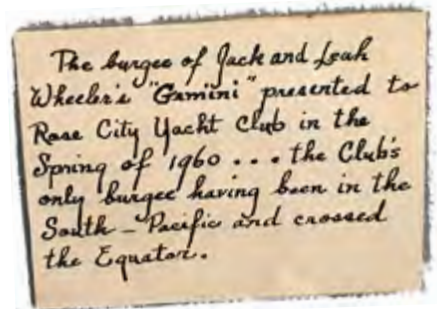 The burgee of Jack and Leah
Wheeler's "Gemini" presented to
Rose City Yacht Club in the
Spring of 1960 . . . the Club's
only burgee having been in the
South - Pacific and crossed
the Equator.